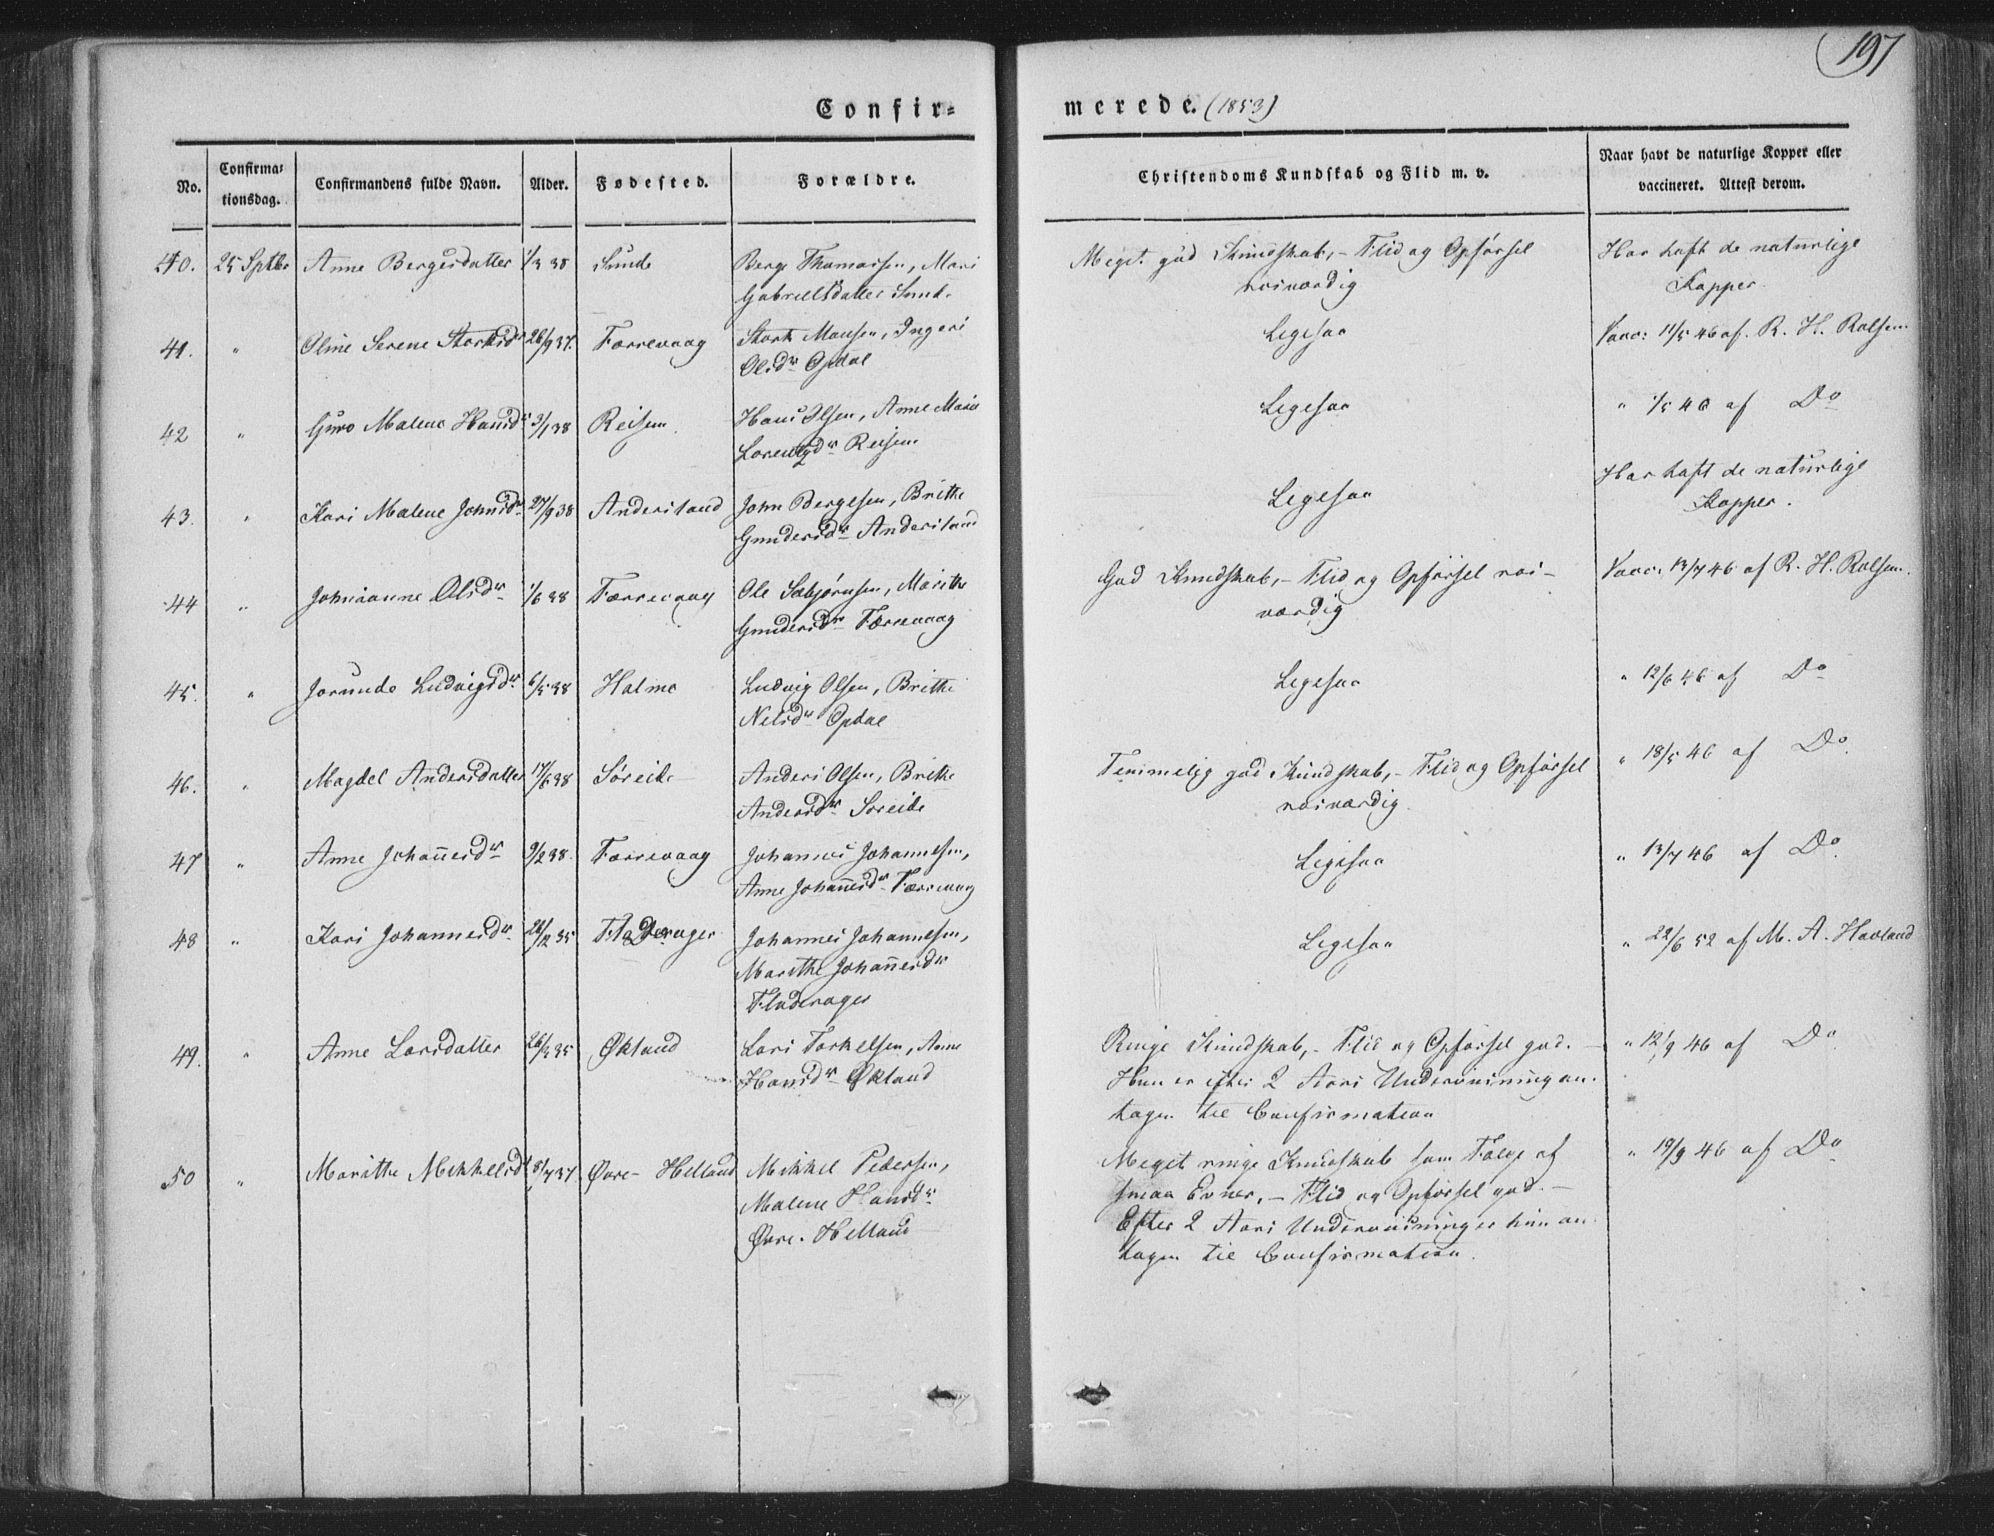 197
Confir- merede. (1853)
No. Confirma- Confirmandens fulde Navn. Alder. Fødested. Forældre. Christendoms Kundskab og Flid m. v. Naar havt de naturlige Kopper eller
tionsdag. vaccineret. Attest derom.
40. 25 Sptbr Anne Bergesdatter 1/3 38 Sunde Berge Thomassen, Mari Meget god Kundskab, - Flid og Opførsel Har haft de naturlige
Gabrielsdatter Sunde roisværdig Kopper.
41. " Oline Serene Storksdr 26/9 37. Færrevaag Stork Monsen, Ingeri Ligesaa Vacc: 11/5 46 af R. H. Rolfsen
Olsdr Opdal
42 " Guro Malene Hansdr 3/1 38 Reisen Hans Olsen, Anne Marie Ligesaa " 1/5 40 af Do
Lorentzdr Reisen
43. " Kari Malene Johnsdr 27/9 38 Andersland John Bergesen, Brithe Ligesaa Har haft de naturlige
Gundersdr Andersland Kopper.
44 " Johnanne Olsdr 1/6 38 Færrevaag Ole Sæbjørnsen, Marithe God Kundskab, - Flid og Opførsel roi- Vacc: 13/7 46 af R. H. Rolfsen.
Gundersdr Færrevaag værdig
45. " Jorunde Ludvigsdr 6/5 38 Holme Ludvig Olsen, Brithe Ligesaa " 12/6 46 af Do
Nelsdr Opdal
46. " Magdel Andersdatter 17/6 38 Søreide Anders Olsen, Brithe Temmelig god Kundskab, - Flid og Opførsel " 18/5 46 af Do.
Andersdr Søreide roisværdig.
47 " Anne Johannesdr 9/2 38. Færrevaag Johannes Johannesen, Ligesaa " 13/7 46 af Do.
Anne Johannesdr Færrevaag
48 " Kari Johannesdr 26/12 35 Fladerager Johannes Johannesen, Ligesaa " 22/6 52 af M. A. Havland
Marithe Johannesdr
Fladerager
49. " Anne Larsdatter 26/3 35 Økland Lars Torkelsen, Anne Ringe Kundskab, - Flid og Opførsel god. - " 12/9 46 af Do
Hansdr Økland Hun er efter 2 Aars Underviisning an-
tagen til Confirmation
50 " Marithe Mikkelsdr 8/7 37. Øvre-Helland Mikkel Pedersen, Meget ringe Kundskab som Følge af " 19/9 46 af Do
Malene Hansdr smaa Evner, - Flid og Opførsel god. -
Øvre-Helland Efter 2 Aars Underviisning er hun an-
tagen til Confirmation.